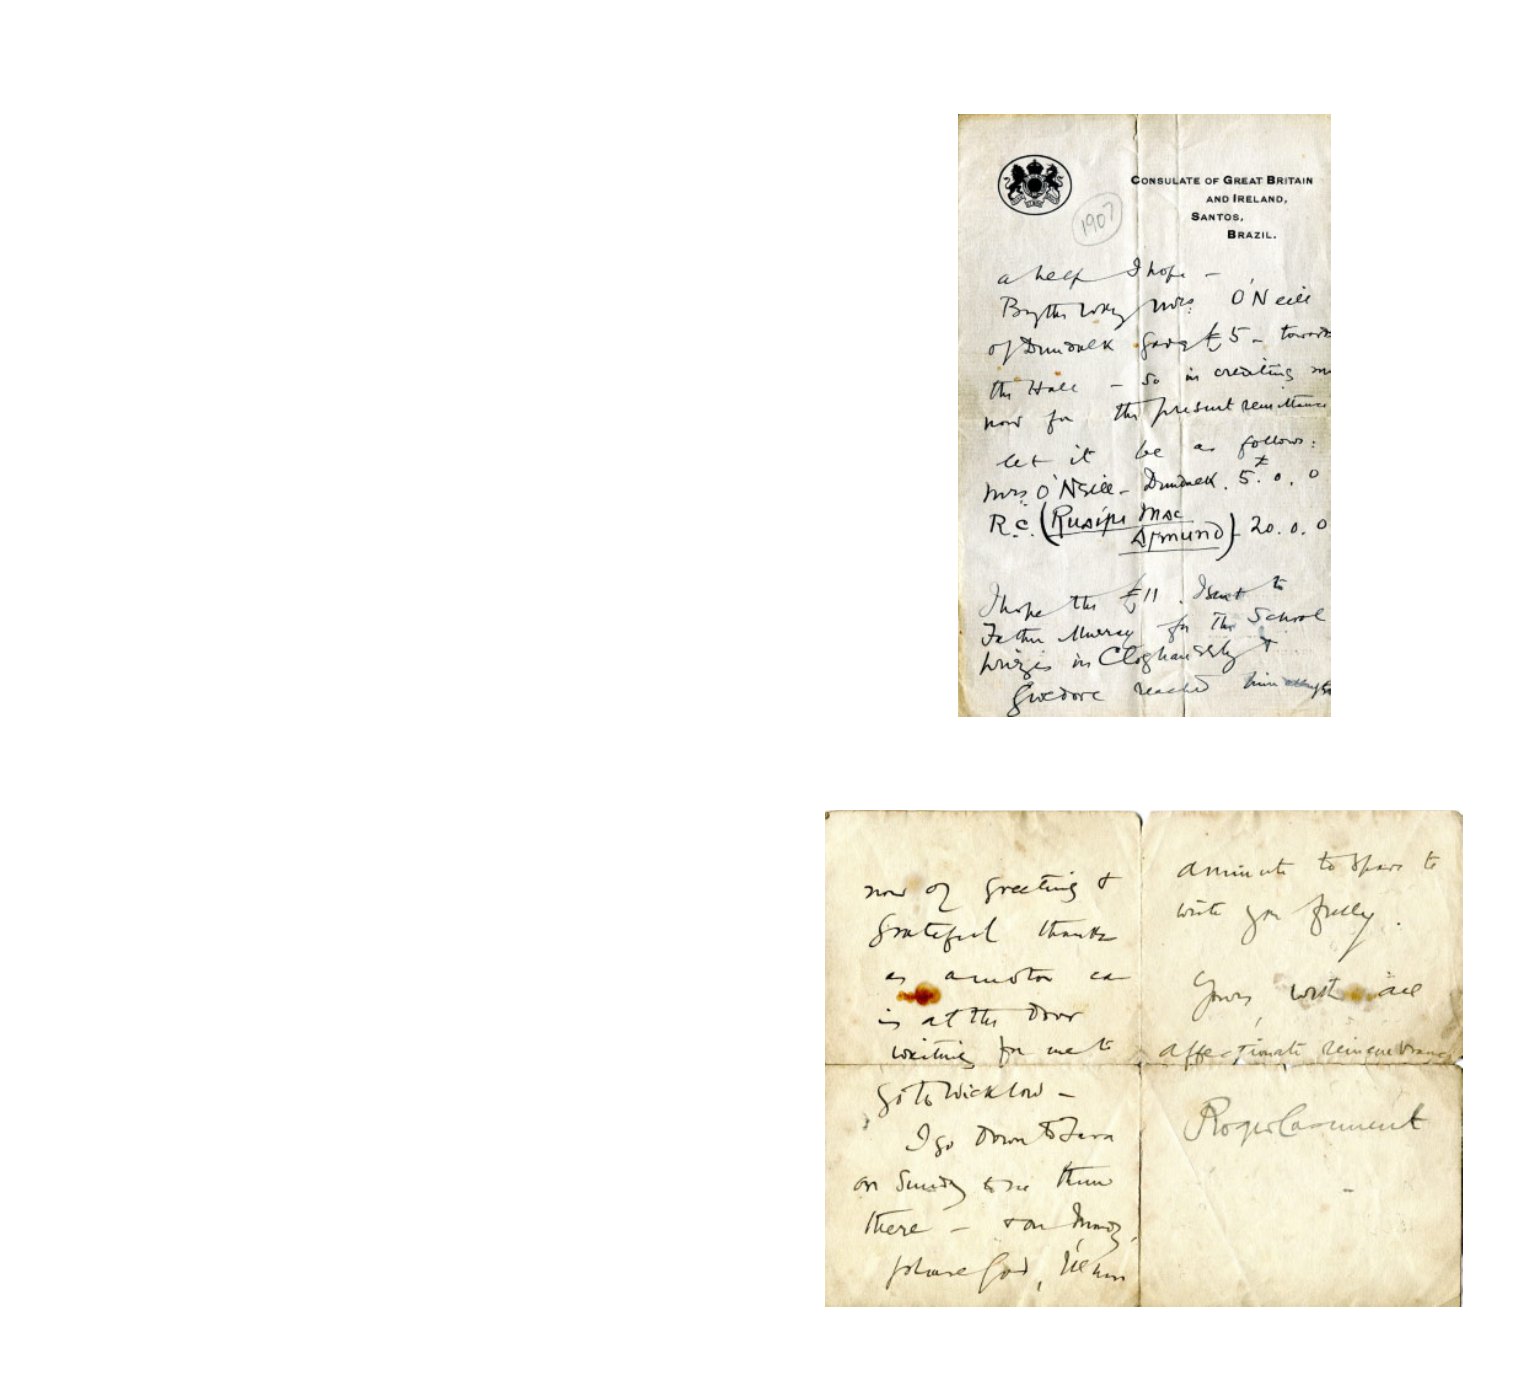 CONSULATE OF GREAT BRITAIN
AND IRELAND,
SANTOS,
BRAZIL.
1907
a help I hope –
By the way Mrs. O'Neill
of Dundalk gave £5 – towards
the Hall – so in crediting me
now for the present remittance
let it be as follows:
Mrs. O'Neill – Dundalk. £5. 0. 0
R.C. (Ruaiḋri Mac
Asmund) – 20. 0. 0
I hope the £11. I sent to
Father Murray for the School
prizes in Cloghaneely &
Gweedore reached him
now of greeting &
grateful thanks
as a motor car
is at the door
waiting for me to
go to Wicklow –
I go down to Tawin
on Sunday to see them
there – & on Monday,
please God, I'll
a minute to spare to
write you fully.
Yours, with all
affectionate remembrances
Roger Casement